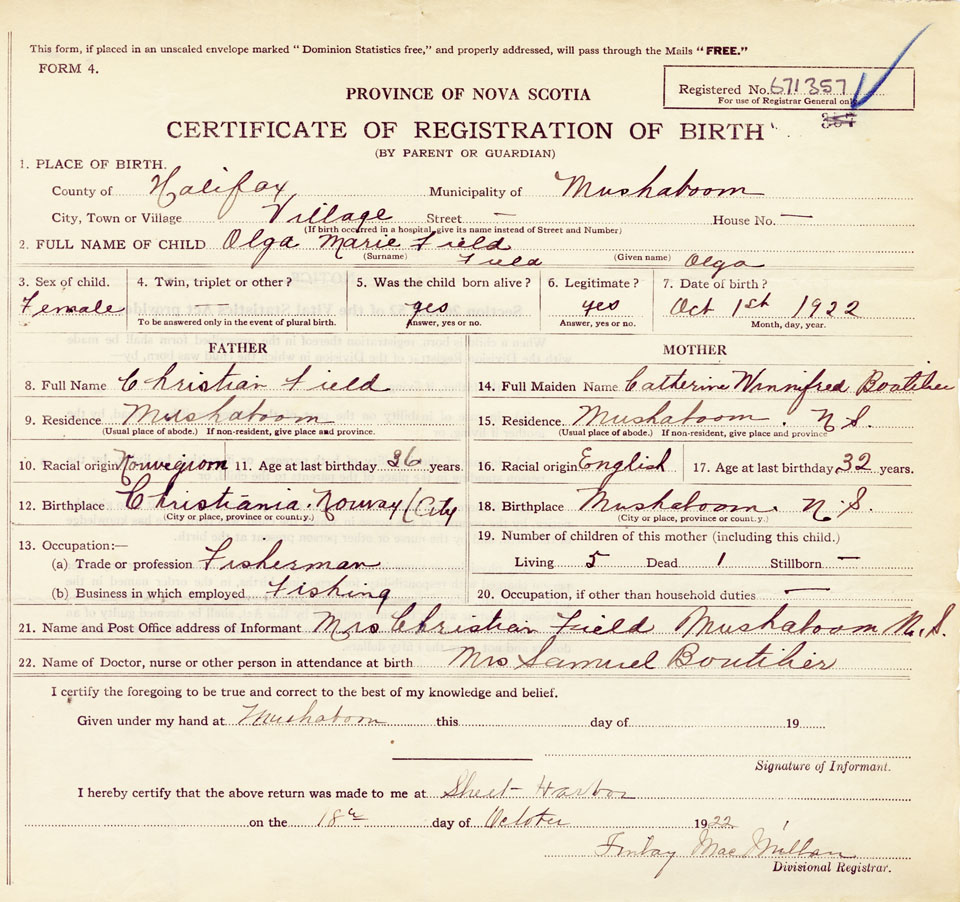 This form, if placed in an unsealed envelope marked "Dominion Statistics free," and properly addressed, will pass through the Mails "FREE."
FORM 4.
Registered No. 671357
For use of Registrar General only
PROVINCE OF NOVA SCOTIA
CERTIFICATE OF REGISTRATION OF BIRTH
(BY PARENT OR GUARDIAN)
1. PLACE OF BIRTH.
County of Halifax Municipality of Mushaboom
City, Town or Village Village Street — House No. —
(If birth occurred in a hospital, give its name instead of Street and Number)
2. FULL NAME OF CHILD Olga Marie Field
(Surname) Field (Given name) Olga
3. Sex of child. 4. Twin, triplet or other? 5. Was the child born alive? 6. Legitimate? 7. Date of birth?
Female — yes yes Oct 1st 1922
To be answered only in the event of plural birth. Answer, yes or no. Answer, yes or no. Month, day, year.
FATHER MOTHER
8. Full Name Christian Field 14. Full Maiden Name Catherine Winnifred Boutilier
9. Residence Mushaboom 15. Residence Mushaboom. N S.
(Usual place of abode.) If non-resident, give place and province. (Usual place of abode.) If non-resident, give place and province
10. Racial origin Norwegiom 11. Age at last birthday 36 years. 16. Racial origin English 17. Age at last birthday 32 years.
12. Birthplace Christiania. Norway (City 18. Birthplace Mushaboom. N S.
(City or place, province or county.) (City or place, province or county.)
13. Occupation:— 19. Number of children of this mother (including this child.)
(a) Trade or profession Fisherman Living 5 Dead 1 Stillborn —
(b) Business in which employed Fishing 20. Occupation, if other than household duties —
21. Name and Post Office address of Informant Mrs Christian Field Mushaboom N. S.
22. Name of Doctor, nurse or other person in attendance at birth Mrs Samuel Boutilier
I certify the foregoing to be true and correct to the best of my knowledge and belief.
Given under my hand at Mushaboom this day of 19
Signature of Informant.
I hereby certify that the above return was made to me at Sheet Harbor
on the 18th day of October 1922
Finlay MacMillan
Divisional Registrar.